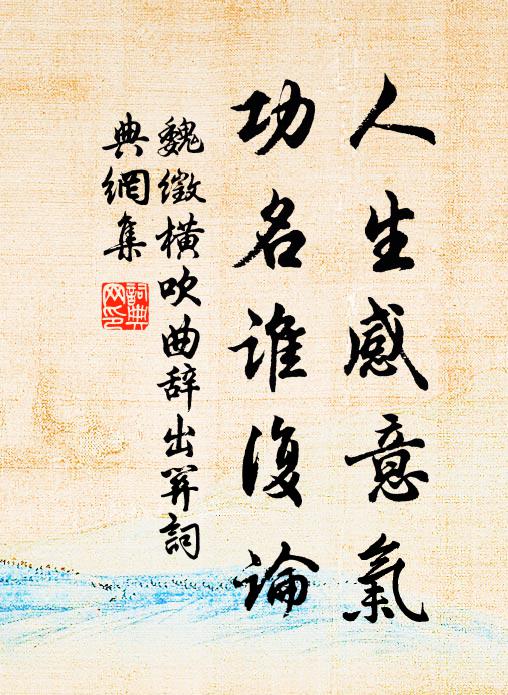 人生感意氣
功名誰復論
魏徵橫吹曲辭出關詞
典網集
詞典
網印